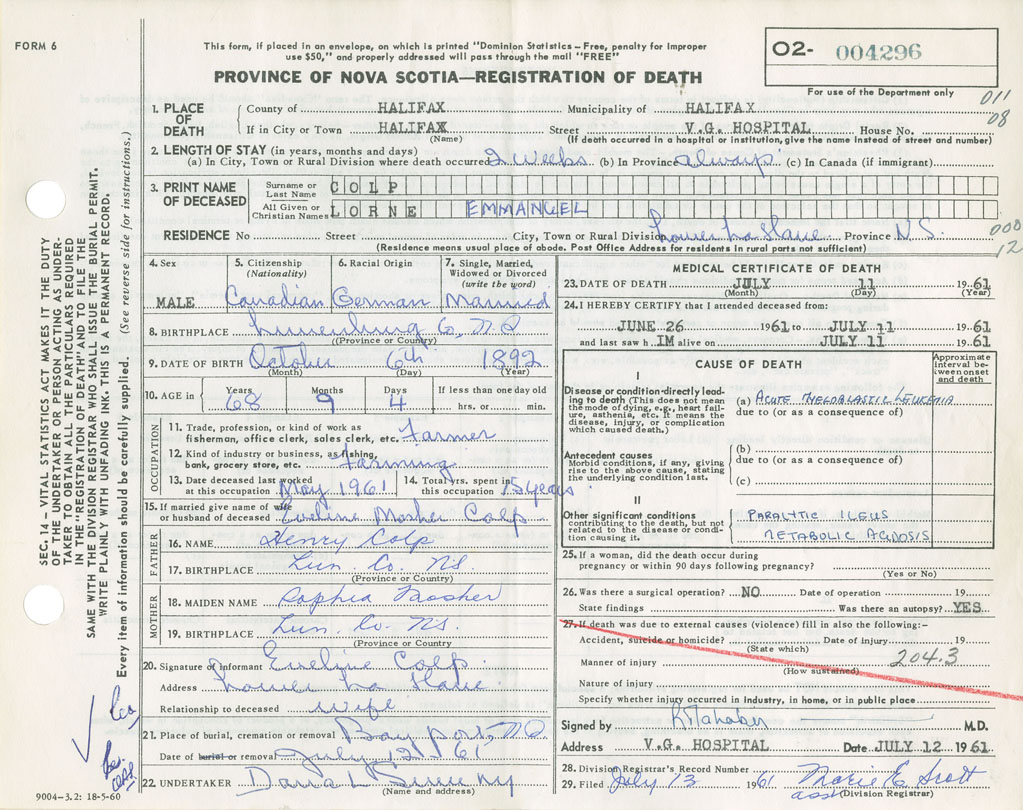 FORM 6
This form, if placed in an envelope, on which is printed "Dominion Statistics – Free, penalty for improper
use $50," and properly addressed will pass through the mail "FREE"
O2- 004296
PROVINCE OF NOVA SCOTIA—REGISTRATION OF DEATH
For use of the Department only
011
08
1. PLACE OF DEATH
County of HALIFAX Municipality of HALIFAX
If in City or Town HALIFAX Street V.G. HOSPITAL House No.
(Name) (If death occurred in a hospital or institution, give the name instead of street and number)
2. LENGTH OF STAY (in years, months and days)
(a) In City, Town or Rural Division where death occurred 2 weeks (b) In Province always (c) In Canada (if immigrant)
3. PRINT NAME OF DECEASED
Surname or Last Name COLP
All Given or Christian Names LORNE EMMANUEL
RESIDENCE No Street City, Town or Rural Division Lower LaHave Province N.S.
(Residence means usual place of abode. Post Office Address for residents in rural parts not sufficient)
000
12
4. Sex MALE
5. Citizenship (Nationality) Canadian
6. Racial Origin German
7. Single, Married, Widowed or Divorced (write the word) Married
8. BIRTHPLACE Lunenburg Co, N.S
(Province or Country)
9. DATE OF BIRTH October 6th 1892
(Month) (Day) (Year)
10. AGE in Years 68 Months 9 Days 4 If less than one day old hrs. or min.
OCCUPATION
11. Trade, profession, or kind of work as fisherman, office clerk, sales clerk, etc. Farmer
12. Kind of industry or business, as fishing, bank, grocery store, etc. Farming
13. Date deceased last worked at this occupation May 1961
14. Total Yrs. spent in this occupation 15 years
15. If married give name of wife or husband of deceased Eveline Mosher Colp
FATHER
16. NAME Henry Colp
17. BIRTHPLACE Lun. Co. NS
(Province or Country)
MOTHER
18. MAIDEN NAME Sophia Mosher
19. BIRTHPLACE Lun. Co. NS.
(Province or Country)
20. Signature of informant Eveline Colp.
Address Lower La Have
Relationship to deceased wife
21. Place of burial, cremation or removal Bayport, N.S.
Date of burial or removal July 12 61
22. UNDERTAKER
(Name and address)
9004-3.2: 18-5-60
SEC. 14 – VITAL STATISTICS ACT MAKES IT THE DUTY
OF THE UNDERTAKER OR PERSON ACTING AS UNDER-
TAKER TO OBTAIN ALL THE PARTICULARS REQUIRED
IN THE "REGISTRATION OF DEATH" AND TO FILE THE
SAME WITH THE DIVISION REGISTRAR WHO SHALL ISSUE THE BURIAL PERMIT.
WRITE PLAINLY WITH UNFADING INK. THIS IS A PERMANENT RECORD.
Every item of information should be carefully supplied. (See reverse side for instructions.)
MEDICAL CERTIFICATE OF DEATH
23. DATE OF DEATH JULY 11 1961
(Month) (Day) (Year)
24. I HEREBY CERTIFY that I attended deceased from:
JUNE 26 1961 to JULY 11 1961
and last saw h IM alive on JULY 11 1961
CAUSE OF DEATH
Approximate interval between onset and death
I
Disease or condition directly leading to death (This does not mean the mode of dying, e.g., heart failure, asthenia, etc. It means the disease, injury, or complication which caused death.)
(a) ACUTE MYELOBLASTIC LEUKEMIA
due to (or as a consequence of)
Antecedent causes
Morbid conditions, if any, giving rise to the above cause, stating the underlying condition last.
(b)
due to (or as a consequence of)
(c)
II
Other significant conditions
contributing to the death, but not related to the disease or condition causing it.
PARALYTIC ILEUS
METABOLIC ACIDOSIS
25. If a woman, did the death occur during pregnancy or within 90 days following pregnancy?
(Yes or No)
26. Was there a surgical operation? NO Date of operation 19
State findings Was there an autopsy? YES
27. If death was due to external causes (violence) fill in also the following:-
Accident, suicide or homicide? Date of injury 19
(State which)
Manner of injury 204.3
(How sustained)
Nature of injury
Specify whether injury occurred in industry, in home, or in public place
Signed by M.D.
Address V.G. HOSPITAL Date JULY 12 1961
28. Division Registrar's Record Number
29. Filed July 13 1961 Marie E Scott
asst (Division Registrar)